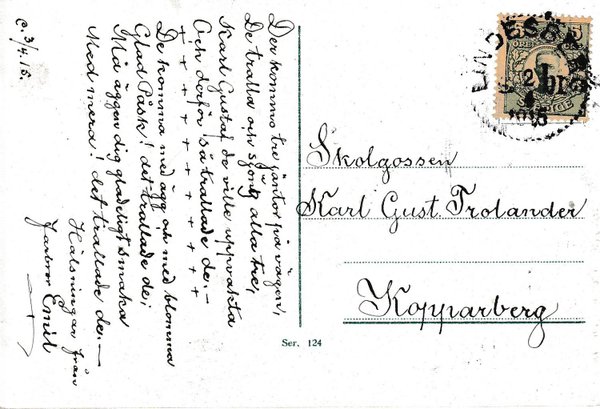 C. 3/4 15.
Der kommo tre jäntor på vägen,
De tralla och sjöng alla tre,
Karl Gustaf de ville uppvakta
Och derför så trallade de. –
+ + + + + + + + +
De komma med ägg och med blomma
Glad Påsk! det trallade de;
Må äggen dig gladeligt smaka
Med mera! det trallade de. –
Hälsningar från
Farbror Emil
LINDESBERG
Skolgossen
Karl Gust. Trolander
Kopparberg
Ser. 124